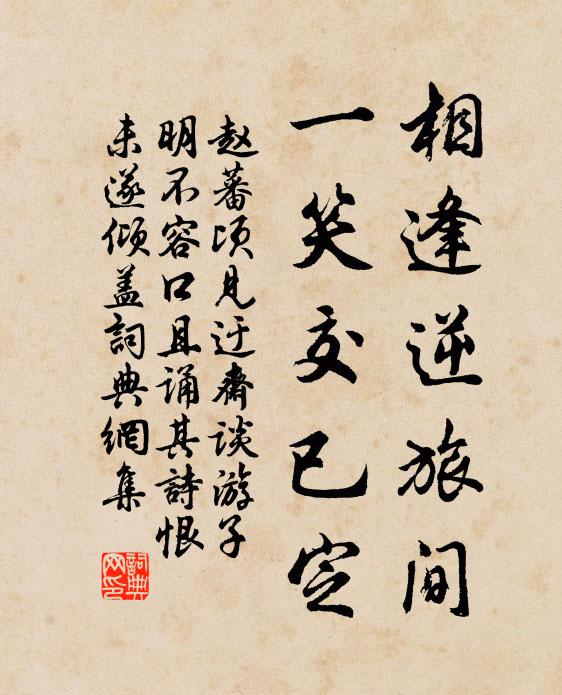 相逢逆旅间
一笑交已定
赵蕃顷见迂齋谈游子
明不容口且诵其詩恨
未遂倾盖詞典網集
詞典網印